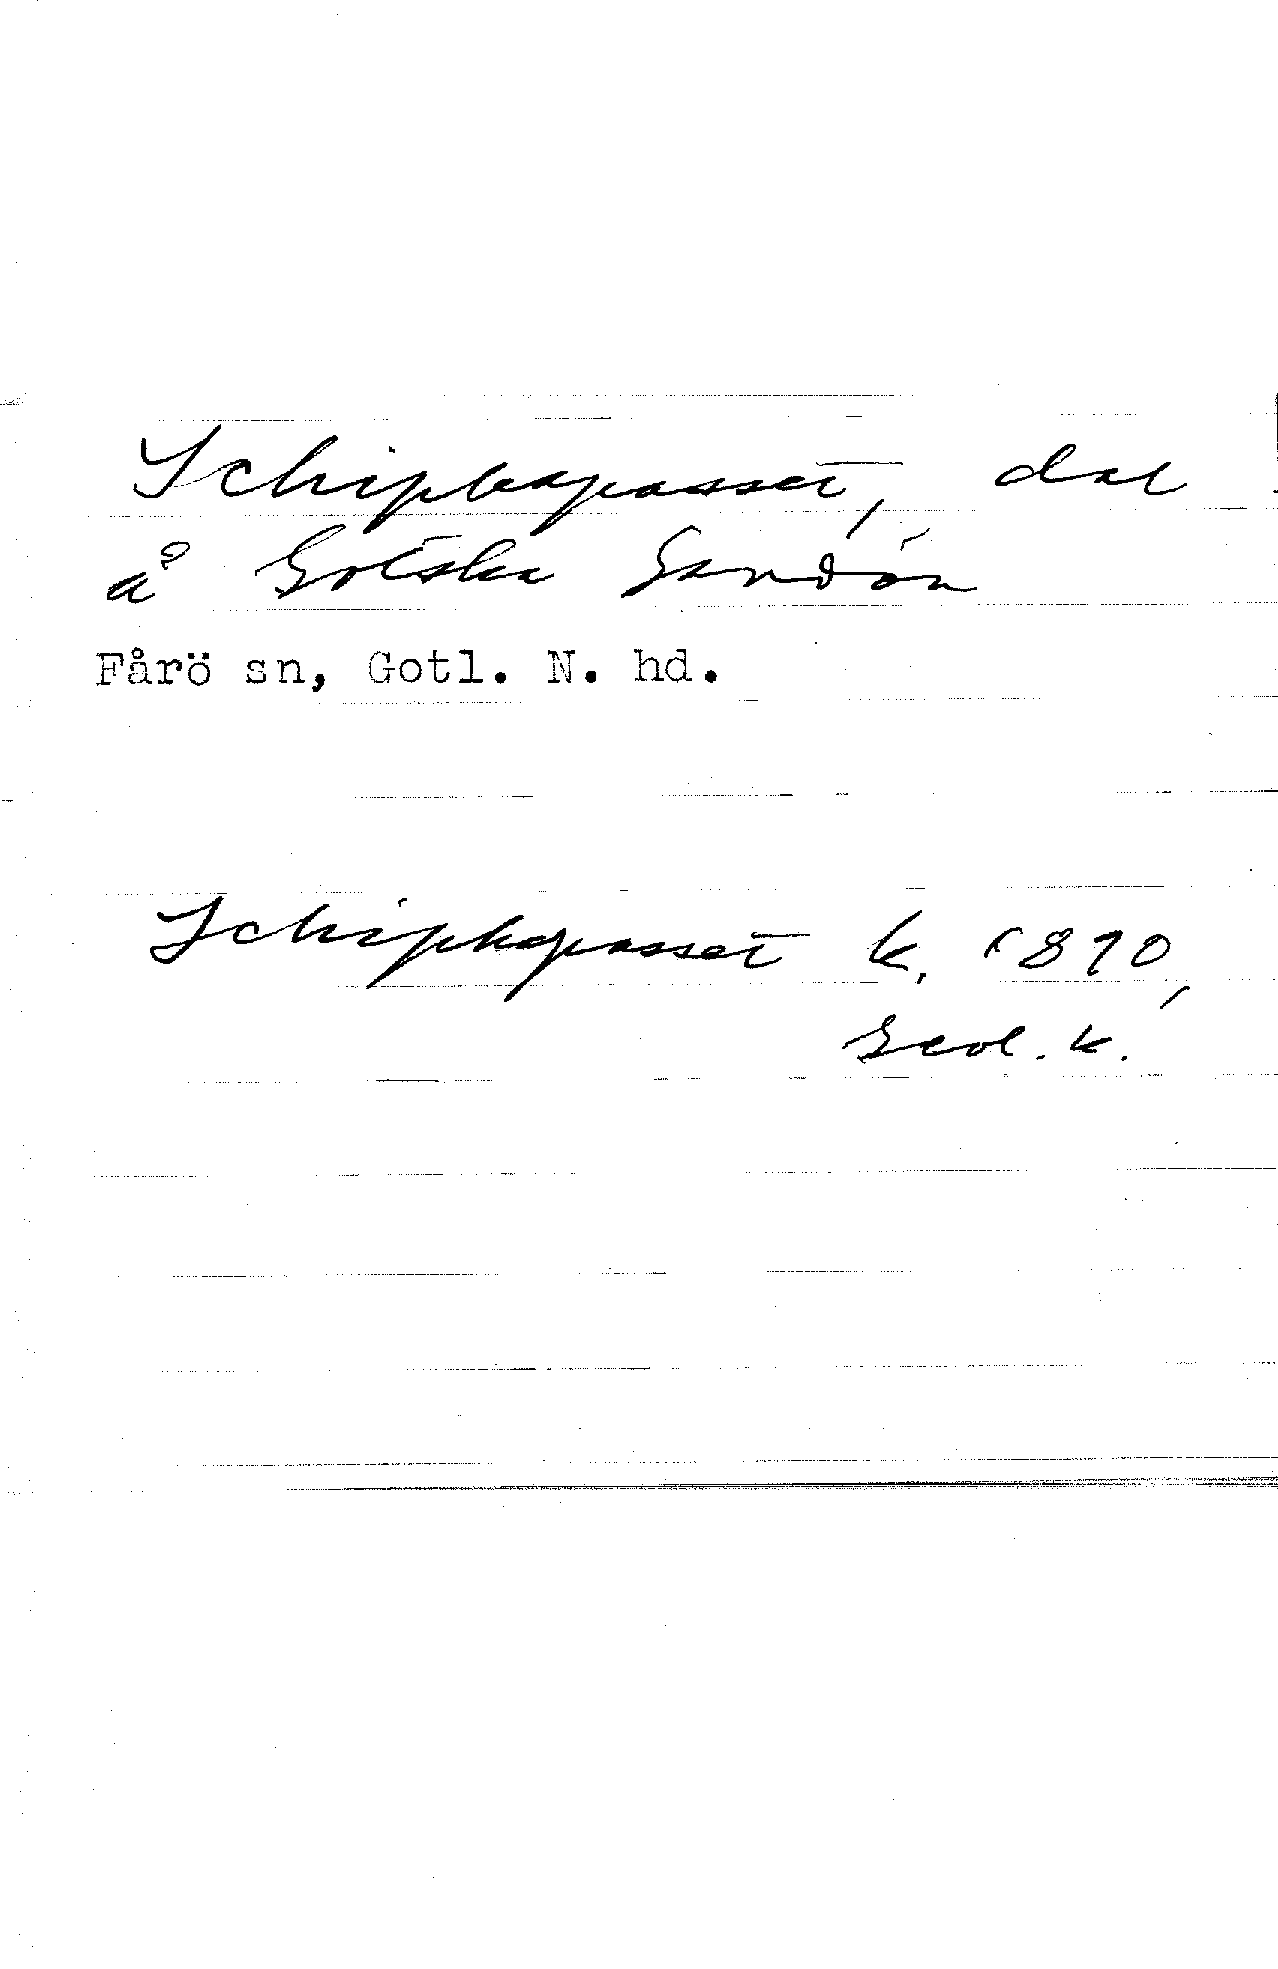 Schipkapasset, dal
å Gotska Sandön
Fårö sn, Gotl. N. hd.
Schipkapasset k. 1890,
Geol. k.